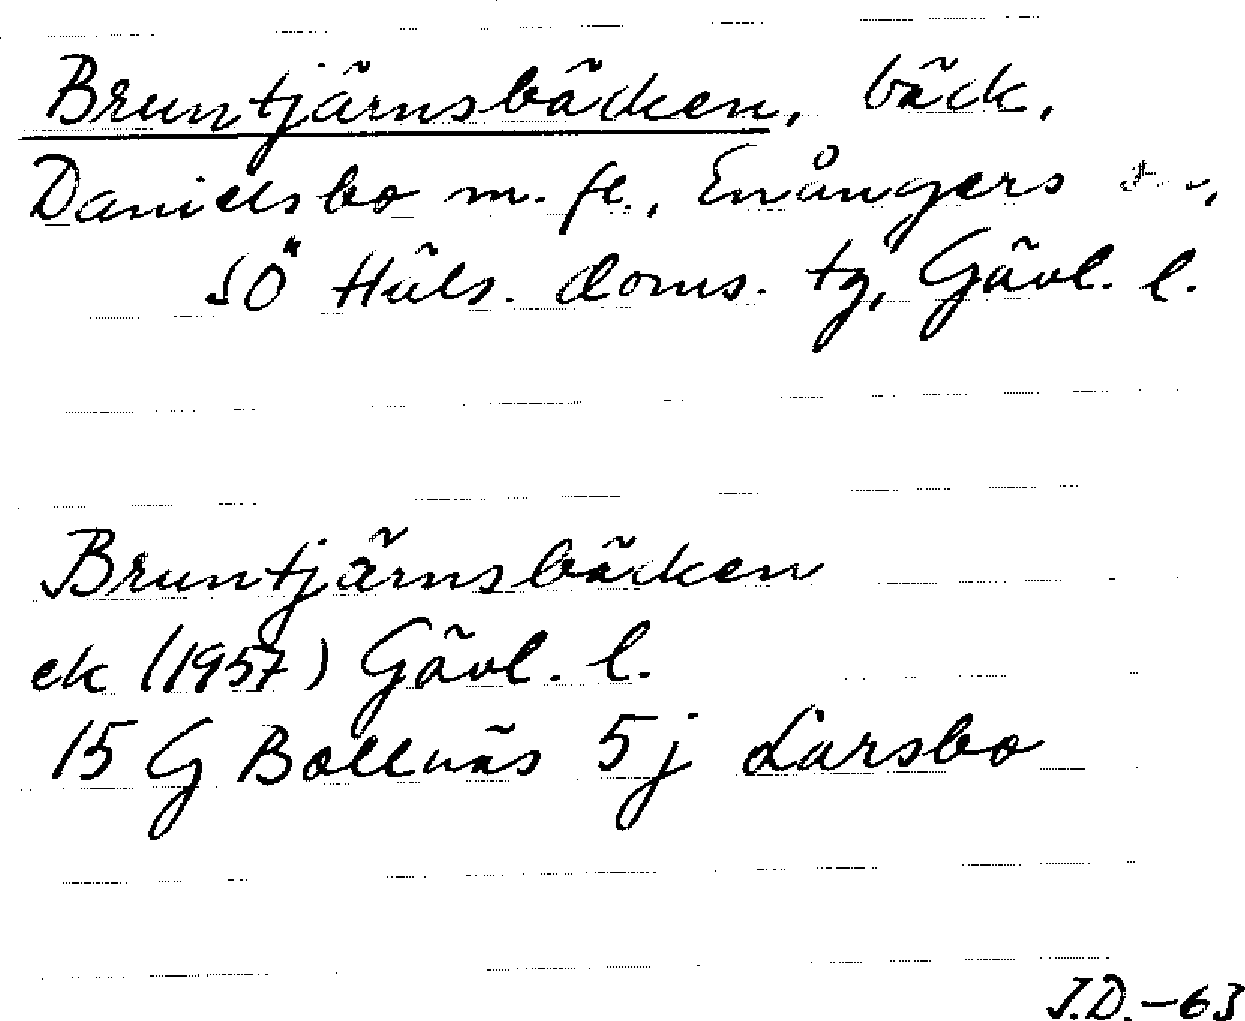 Bruntjärnsbäcken, bäck,
Danielsbo m. fl., Enångers
SÖ Häls. doms. tg, Gävl. l.
Bruntjärnsbäcken
ek (1957) Gävl. l.
15 G Bollnäs 5 j Larsbo
J.D. -63